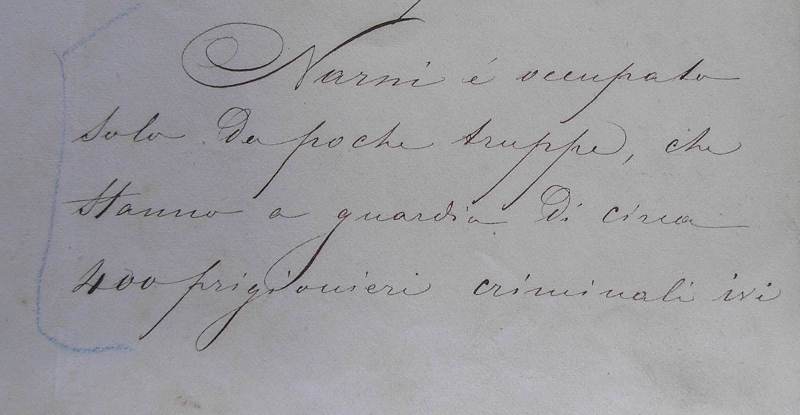 Narni é occupato
solo da poche truppe, che
stanno a guardia di circa
400 prigionieri criminali ivi